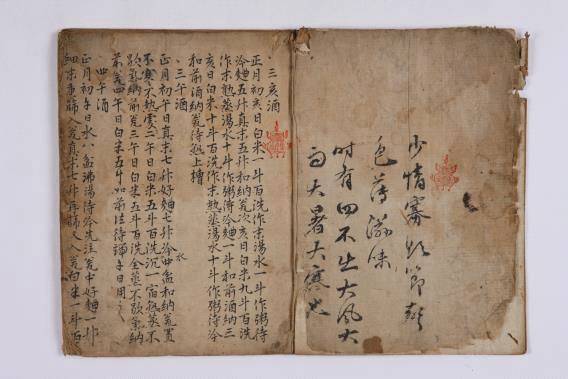 少情寡慾節聲
色薄滋味
時有四不出大風大
雨大暑大寒也
三亥酒
正月初亥日白米一斗百洗作末湯水一斗作粥待
冷麴五升真末五升和納瓮次亥日白米九斗百洗
作末熟蒸湯水十斗作粥待冷一斗和前酒納三
亥日白米十斗百洗作末熟蒸湯水十斗作粥待冷
和前酒納瓮待熟上槽
三午酒
正月初午日真末七升好麴七升冷水四盆和納瓮置
不寒不熱處二午日白米五斗百洗沉一宿熟蒸不
歇氣納前瓮三午日白米五斗百洗全蒸不歇氣納
前瓮四午日白米五斗如前法待端午日用之
四午酒
正月初午日水八盆沸湯待冷先注瓮中好麴一升
細末重篩入瓮真末七升再篩入瓮白米一斗百